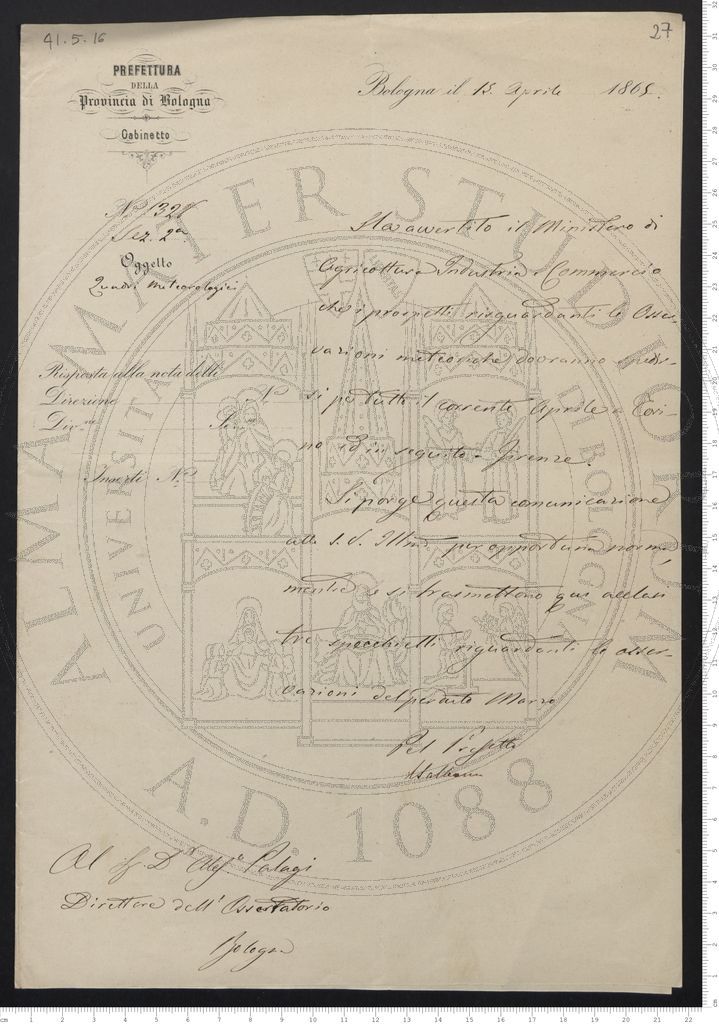 41.5.16
27
PREFETTURA
DELLA
Provincia di Bologna
Gabinetto
Bologna il 15. Aprile 1865.
Sez. 2a
Oggetto
Quadri Meteorologici
Risposta alla nota delli
Direzione N.o
Div.ne Se
Inserti N.o
Ha avvertito il Ministero di
Agricoltura Industria e Commercio
che i prospetti risguardanti le Osser-
vazioni meteoriche dovranno spedir-
si per tutto il corrente Aprile a Tori-
no ed in seguito a Firenze.
Si porge questa comunicazione
alla S. V. Illma per opportuna norma
mentre si trasmettono qui acclusi
tre specchietti riguardanti le osser-
vazioni del perduto Marzo
Pel Prefetto
Al Sig. Dr. Aless. Palagi
Direttore dell'Osservatorio
Bologna
ALMA MATER STUDIORUM
UNIVERSITÀ DI BOLOGNA
A.D. 1088